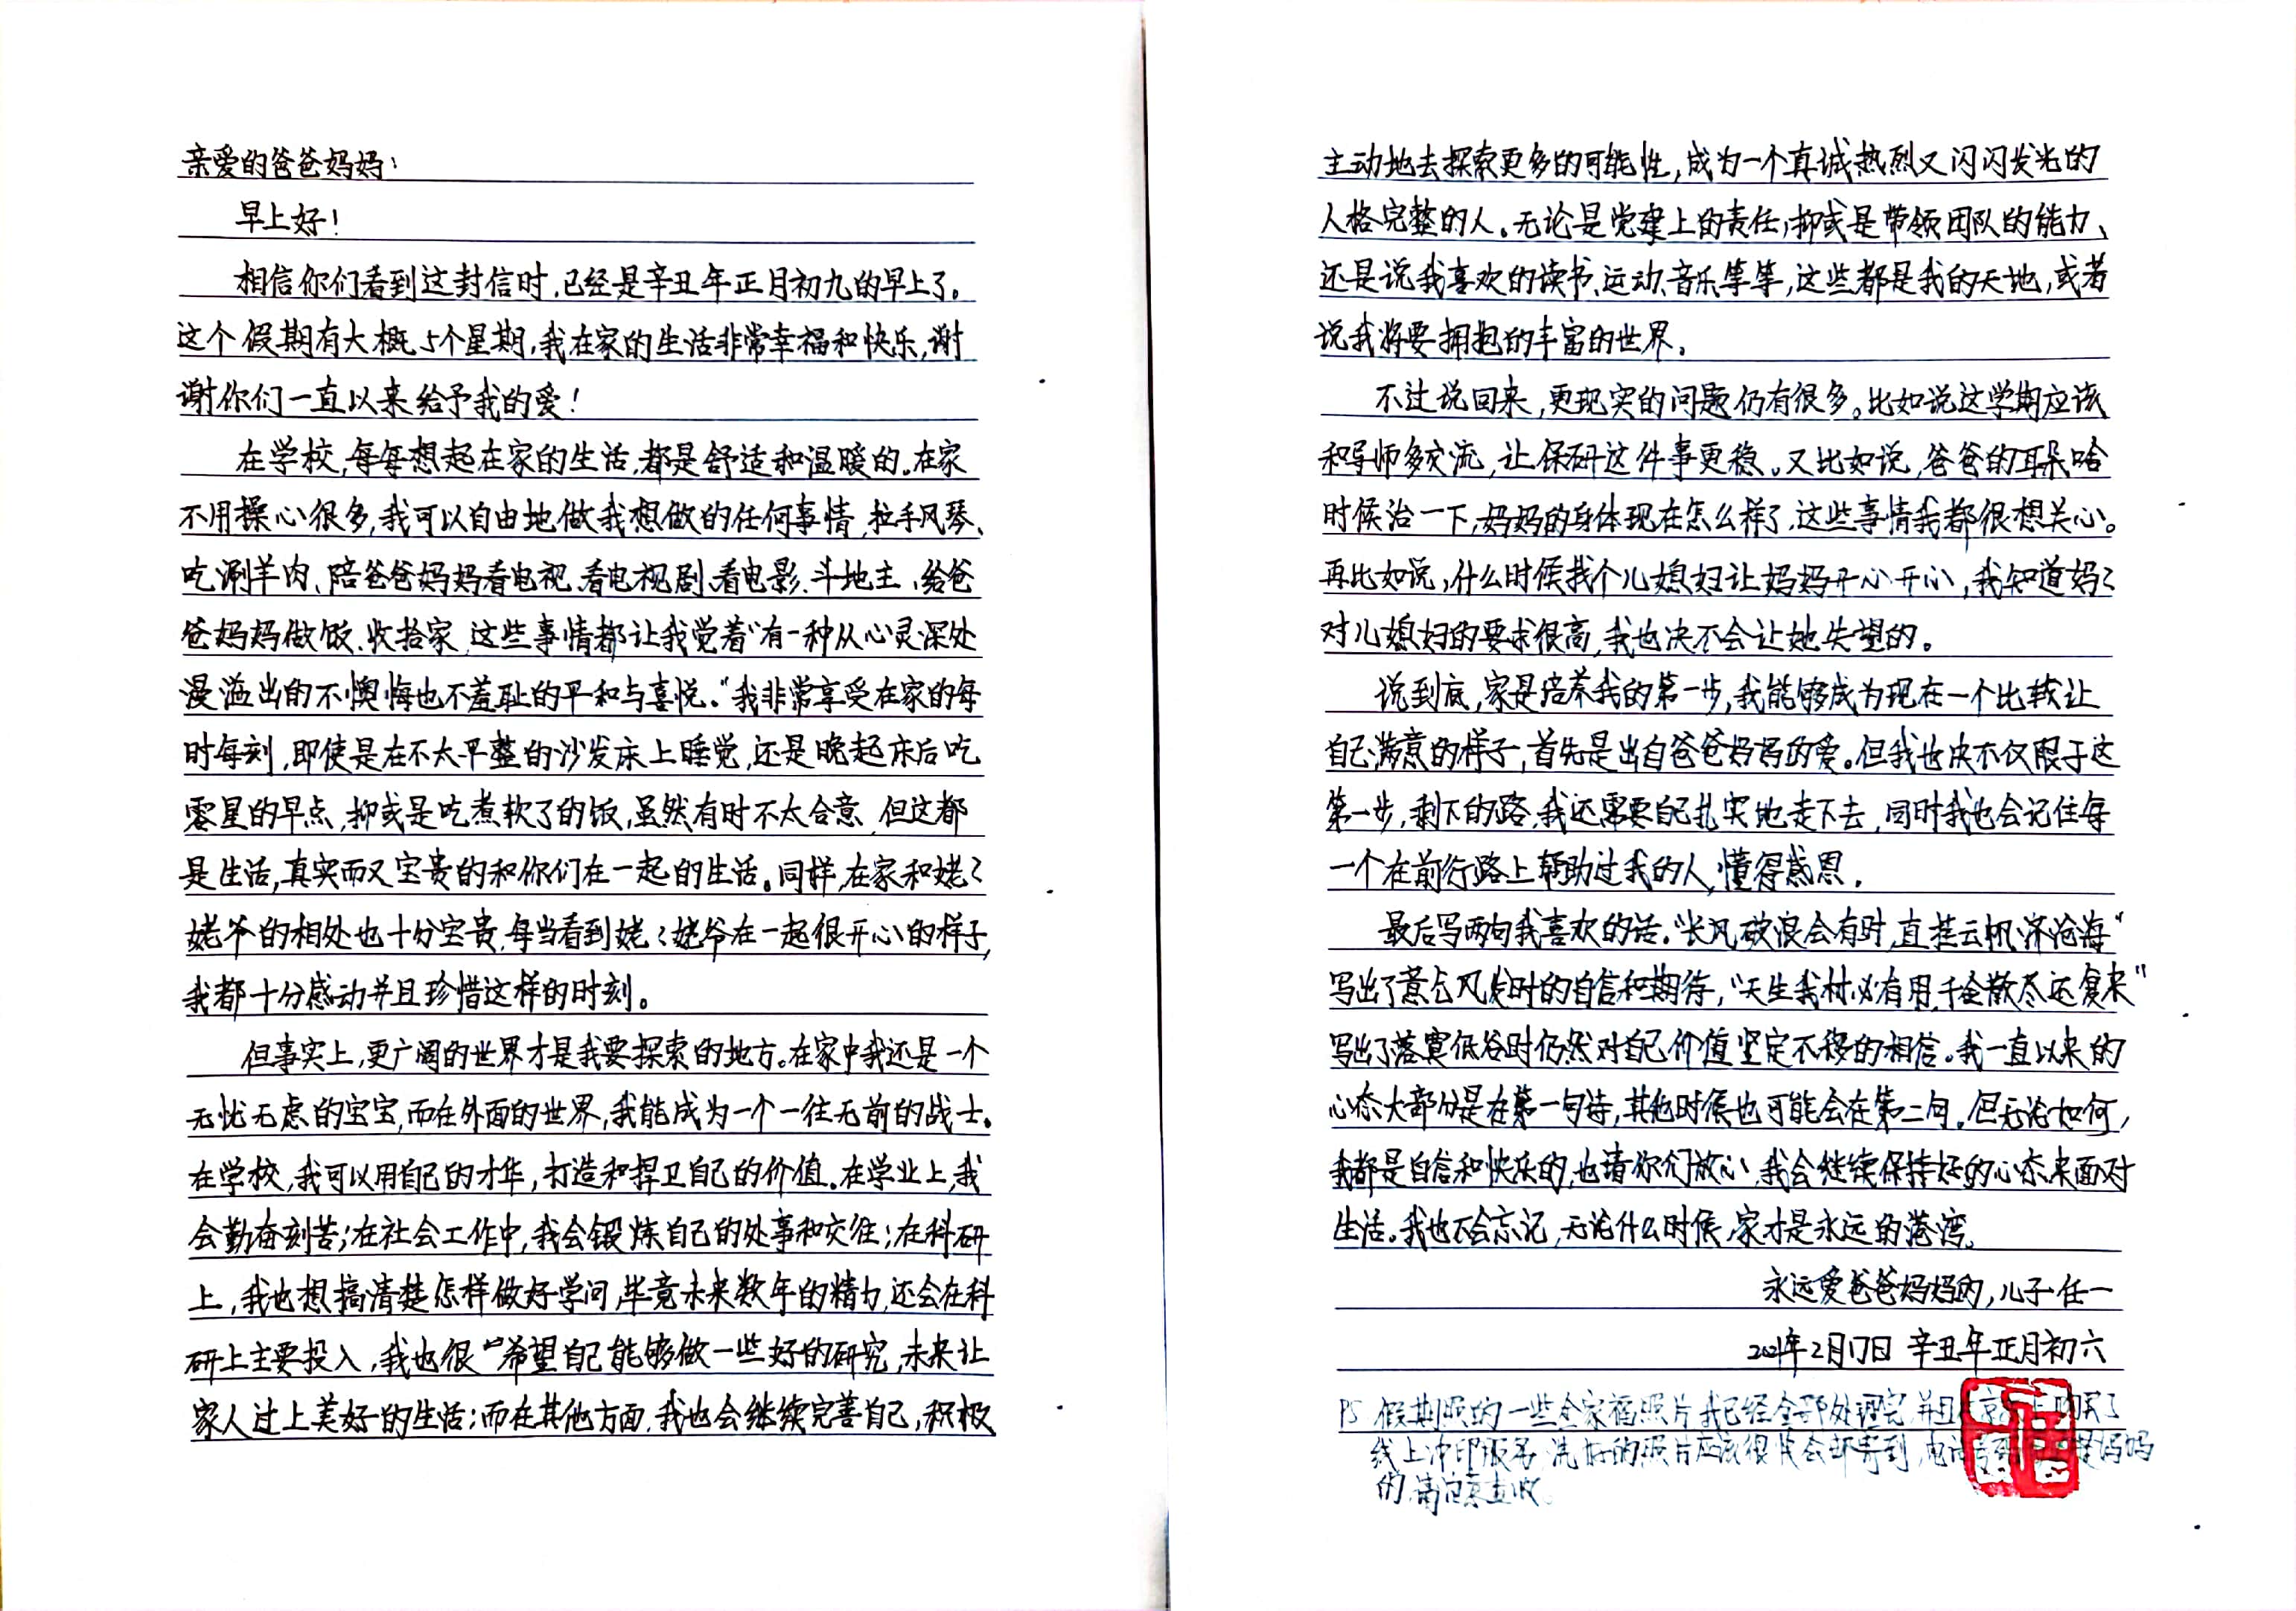 亲爱的爸爸妈妈:
早上好!
相信你们看到这封信时,已经是辛丑年正月初九的早上了。
这个假期有大概5个星期,我在家的生活非常幸福和快乐,谢
谢你们一直以来给予我的爱!
在学校,每每想起在家的生活,都是舒适和温暖的。在家
不用操心很多,我可以自由地做我想做的任何事情,拉手风琴、
吃涮羊肉、陪爸爸妈妈看电视、看电视剧、看电影、斗地主,给爸
爸妈妈做饭、收拾家,这些事情都让我觉着“有一种从心灵深处
漫溢出的不懊悔也不羞耻的平和与喜悦。”我非常享受在家的每
时每刻,即使是在不太平整的沙发床上睡觉,还是晚起床后吃
零星的早点,抑或是吃煮软了的饭,虽然有时不太合意,但这都
是生活,真实而又宝贵的和你们在一起的生活。同样,在家和姥々
姥爷的相处也十分宝贵,每当看到姥々姥爷在一起很开心的样子,
我都十分感动并且珍惜这样的时刻。
但事实上,更广阔的世界才是我要探索的地方。在家中我还是一个
无忧无虑的宝宝,而在外面的世界,我能成为一个一往无前的战士。
在学校,我可以用自己的才华,打造和捍卫自己的价值。在学业上,我
会勤奋刻苦;在社会工作中,我会锻炼自己的处事和交往;在科研
上,我也想搞清楚怎样做好学问,毕竟未来数年的精力,还会在科
研上主要投入,我也很希望自己能够做一些好的研究,未来让
家人过上美好的生活;而在其他方面,我也会继续完善自己,积极
主动地去探索更多的可能性,成为一个真诚热烈又闪闪发光的
人格完整的人。无论是党建上的责任,抑或是带领团队的能力、
还是说我喜欢的读书、运动、音乐等等,这些都是我的天地,或者
说我将要拥抱的丰富的世界。
不过说回来,更现实的问题仍有很多。比如说这学期应该
和导师多交流,让保研这件事更稳。又比如说,爸爸的耳朵啥
时候治一下,妈妈的身体现在怎么样了,这些事情我都很想关心。
再比如说,什么时候找个儿媳妇让妈妈开心开心,我知道妈々
对儿媳妇的要求很高,我也决不会让她失望的。
说到底,家是培养我的第一步,我能够成为现在一个比较让
自己满意的样子,首先是出自爸爸妈妈的爱。但我也决不仅限于这
第一步,剩下的路,我还需要自己扎实地走下去,同时我也会记住每
一个在前行路上帮助过我的人,懂得感恩。
最后写两句我喜欢的话。“长风破浪会有时,直挂云帆济沧海”
写出了意气风发时的自信和期待,“天生我材必有用,千金散尽还复来”
写出了落寞低谷时仍然对自己价值坚定不移的相信。我一直以来的
心态大部分是在第一句诗,其他时候也可能会在第二句。但无论如何,
我都是自信和快乐的,也请你们放心,我会继续保持好的心态来面对
生活。我也不会忘记,无论什么时候,家才是永远的港湾。
永远爱爸爸妈妈的,儿子任一
2021年2月17日 辛丑年正月初六
PS 假期照的一些全家福照片我已经全部处理完,并且在京东上购买了
线上冲印服务,洗好的照片应该很快会邮寄到,电话妈妈
的,请注意查收。